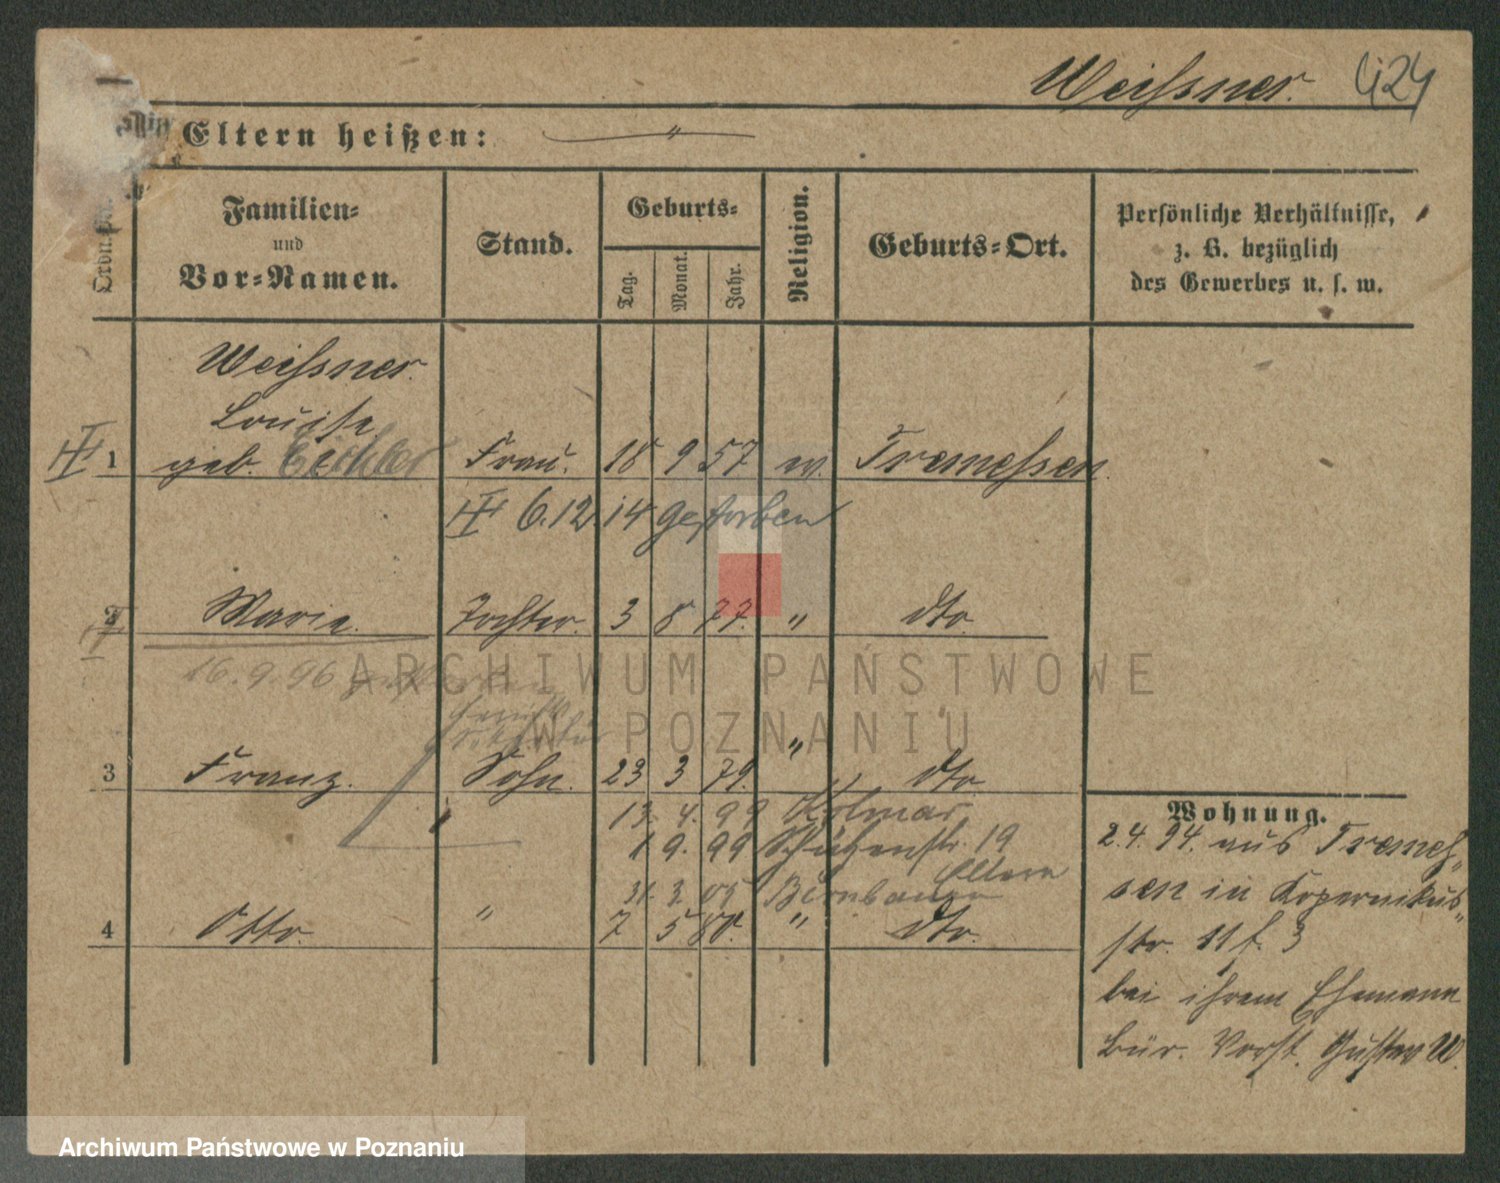 Weissner. 424
Eltern heißen: "
Ordn.
Familien-
und
Vor-Namen.
Stand.
Geburts-
Tag.
Monat.
Jahr.
Religion.
Geburts-Ort.
Persönliche Verhältnisse,
z. B. bezüglich
des Gewerbes u. s. w.
Weissner.
Louise
1 geb. Eichler Frau. 18 9 57 ev. Tremessen
6.12 14 gestorben
2 Marie. Tochter. 3 8 77. " dto.
16.9.96
"
3 Franz. Sohn. 23 3 79. dto.
13. 4. 99 Kolmar
1 9. 99 Schützenstr. 19
Eltern
21. 3. 05 Birnbaum
4 Otto. " 7 5 80. " dto.
Wohnung.
2.4.94. aus Tremes-
sen in Kopernikus-
str. 11 f. 3
bei ihrem Ehemann
Bür. Vorst. Gustav W.
ARCHIWUM PAŃSTWOWE
W POZNANIU
Archiwum Państwowe w Poznaniu